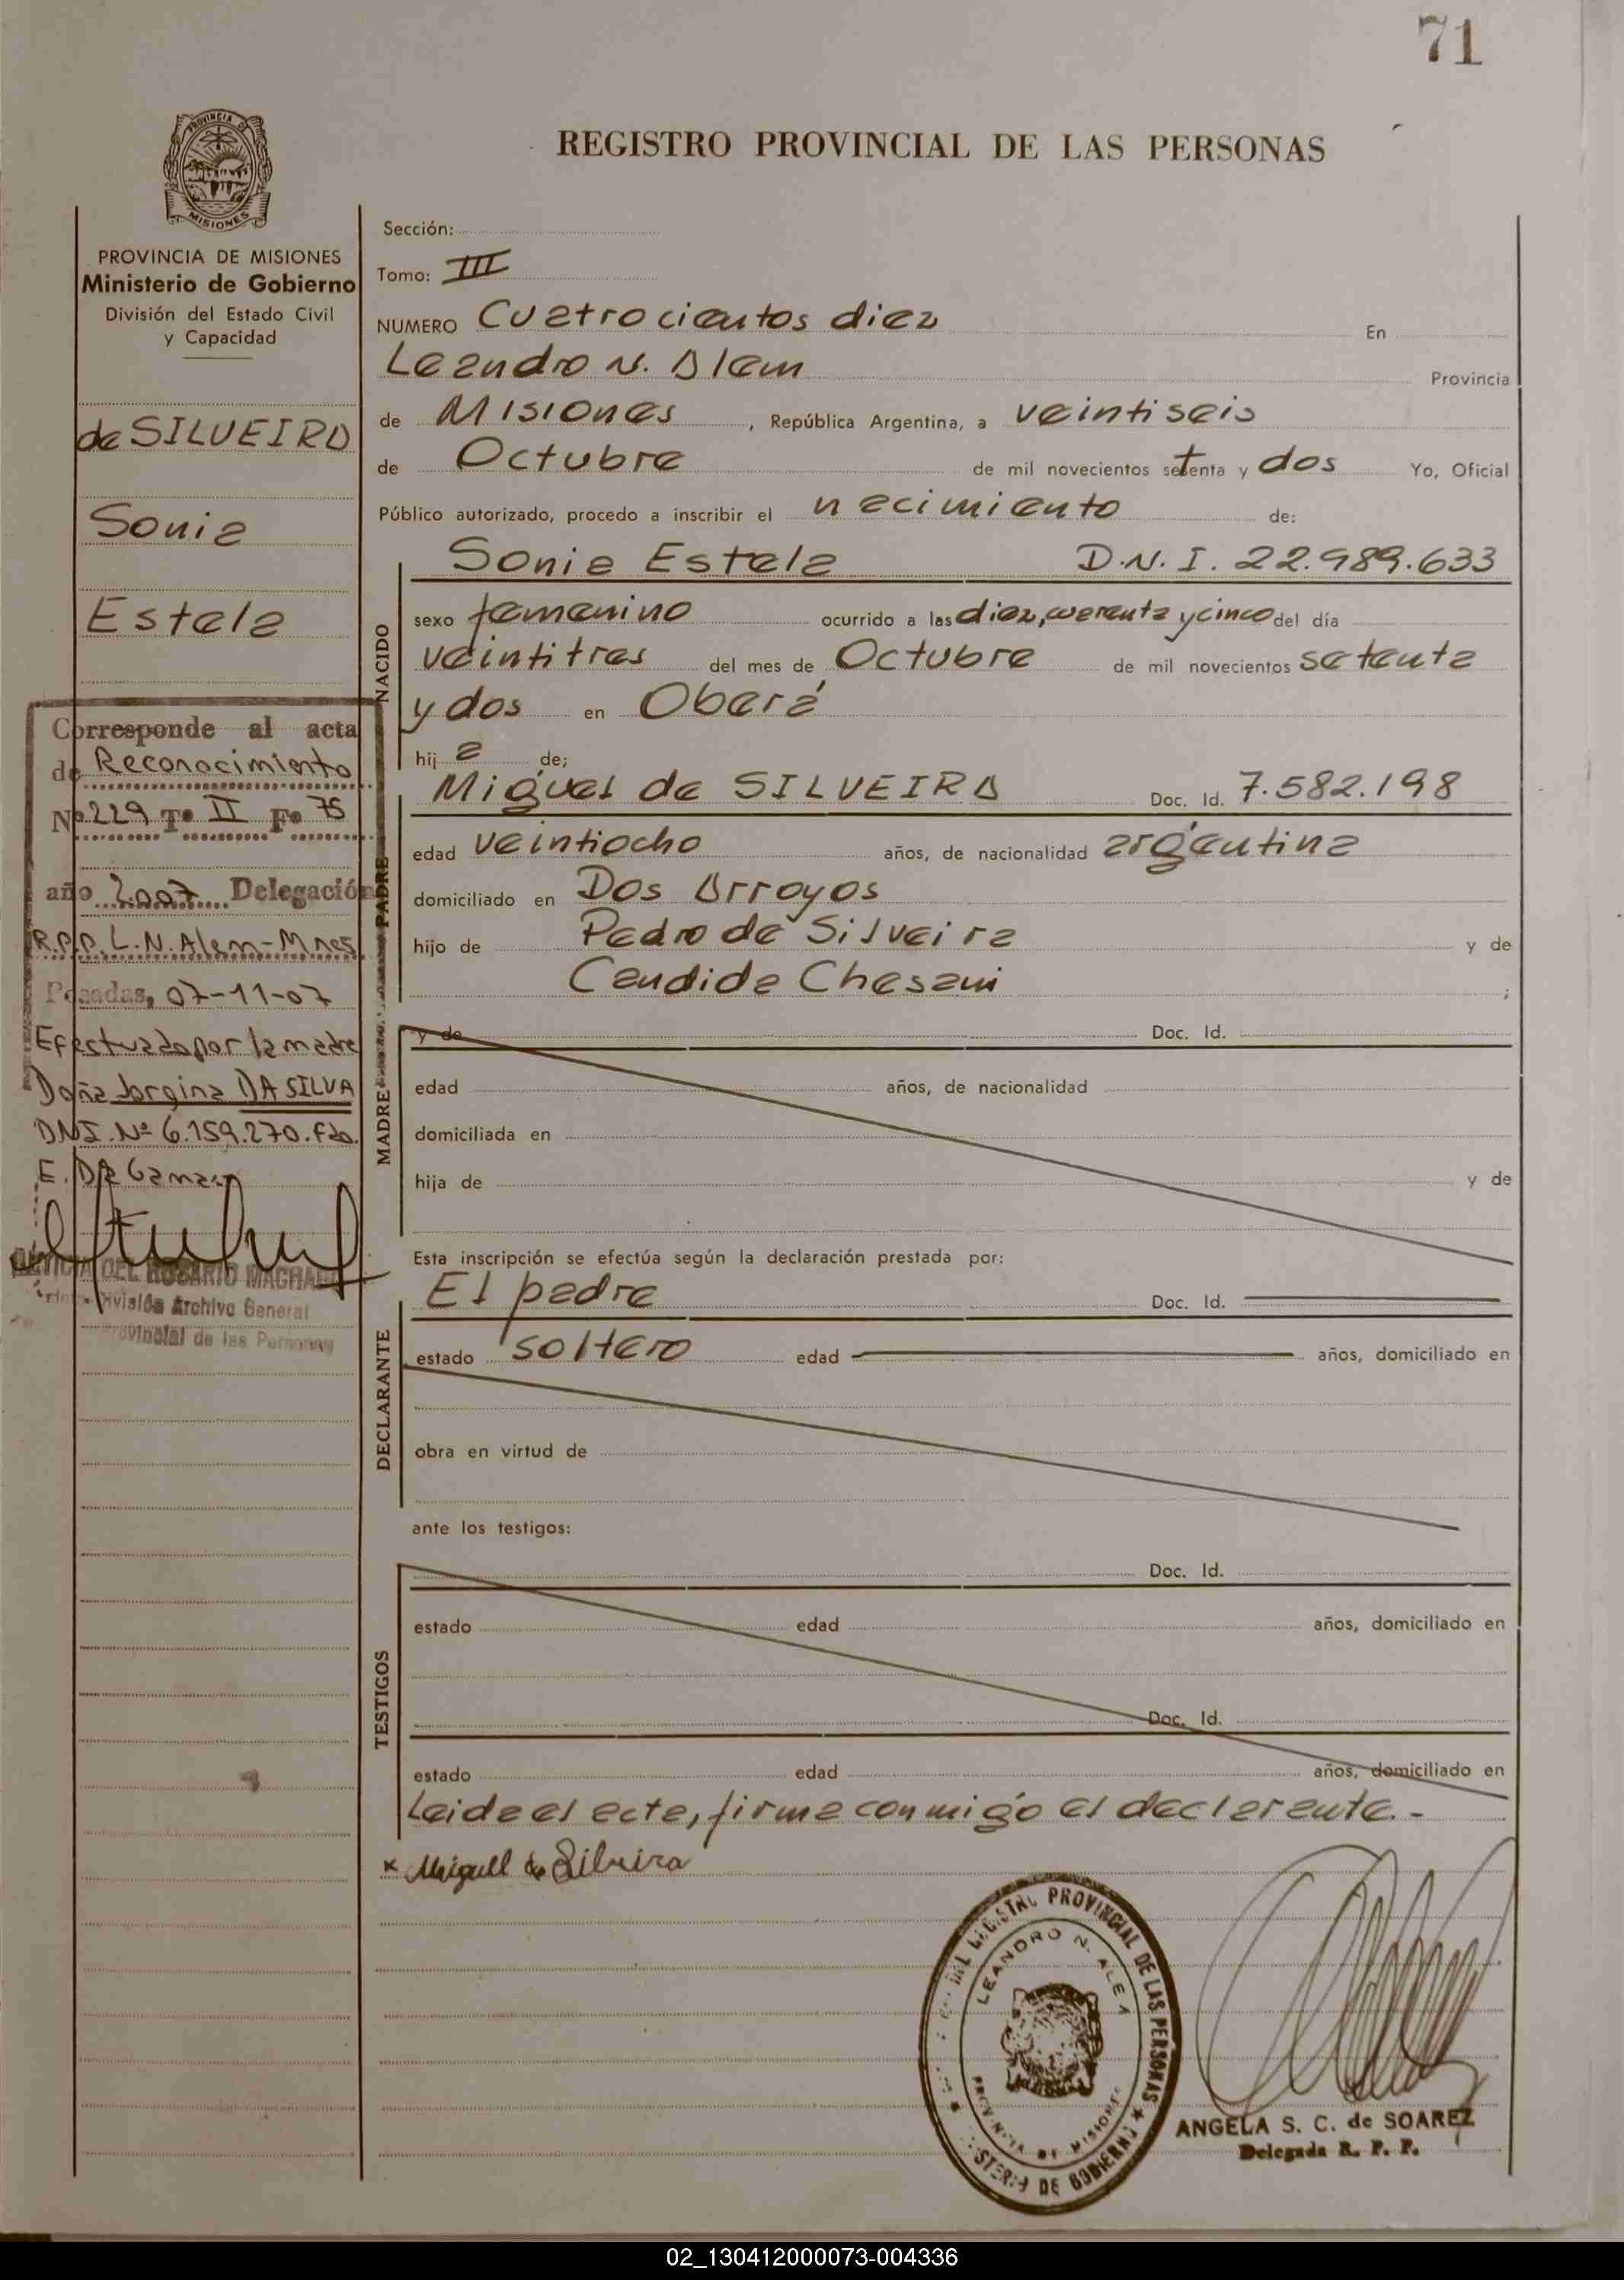 71
REGISTRO PROVINCIAL DE LAS PERSONAS
PROVINCIA DE
MISIONES
PROVINCIA DE MISIONES
Ministerio de Gobierno
División del Estado Civil
y Capacidad
de SILVEIRO
Sonia
Estela
Corresponde al acta
de Reconocimiento
Nº 229 Tº II Fº 75
año 2.007 Delegación
R.P.P. L.N. Alem-Mnes
Posadas, 07-11-07
Efectuado por la madre
Doña Jorgina DA SILVA
DNI. Nº 6.159.270. Fdo.
E.
DEL ROSARIO MACHADO
División Archivo General
Provincial de las Personas
Sección:
Tomo: III
NUMERO Cuatrocientos diez En
Leandro N. Alem Provincia
de Misiones, República Argentina, a veintiseis
de Octubre de mil novecientos setenta y dos Yo, Oficial
Público autorizado, procedo a inscribir el nacimiento de:
NACIDO
Sonia Estela D.N.I. 22.989.633
sexo femenino ocurrido a las diez, cuarenta y cinco del día
veintitres del mes de Octubre de mil novecientos setenta
y dos en Oberá
hij a de;
PADRE
Miguel de SILVEIRA Doc. Id. 7.582.198
edad veintiocho años, de nacionalidad argentina
domiciliado en Dos Arroyos
hijo de Pedro de Silveira y de
Candida Chesani ;
MADRE
y de Doc. Id.
edad años, de nacionalidad
domiciliada en
hija de y de
Esta inscripción se efectúa según la declaración prestada por:
DECLARANTE
El padre Doc. Id.
estado soltero edad años, domiciliado en
obra en virtud de
ante los testigos:
TESTIGOS
Doc. Id.
estado edad años, domiciliado en
Doc. Id.
estado edad años, domiciliado en
Leida el acta, firma conmigo el declarante.-
x Miguell de Silveira
PROVINCIAL DE LAS PERSONAS
LEANDRO N. ALEM
PROVINCIA DE MISIONES
DE GOBIERNO
ANGELA S. C. de SOAREZ
Delegada R. P. P.
02_130412000073-004336